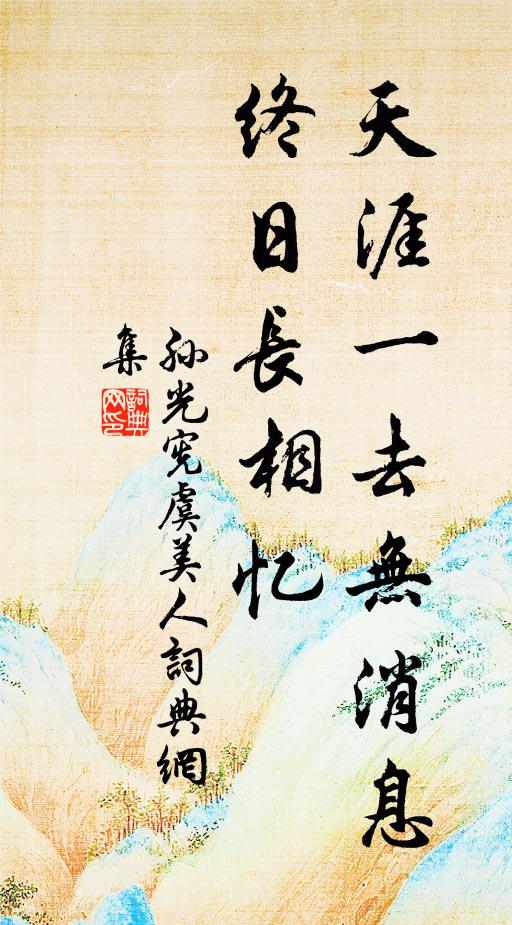 天涯一去無消息
終日長相忆
孙光宪虞美人詞典網
集
詞典
网印